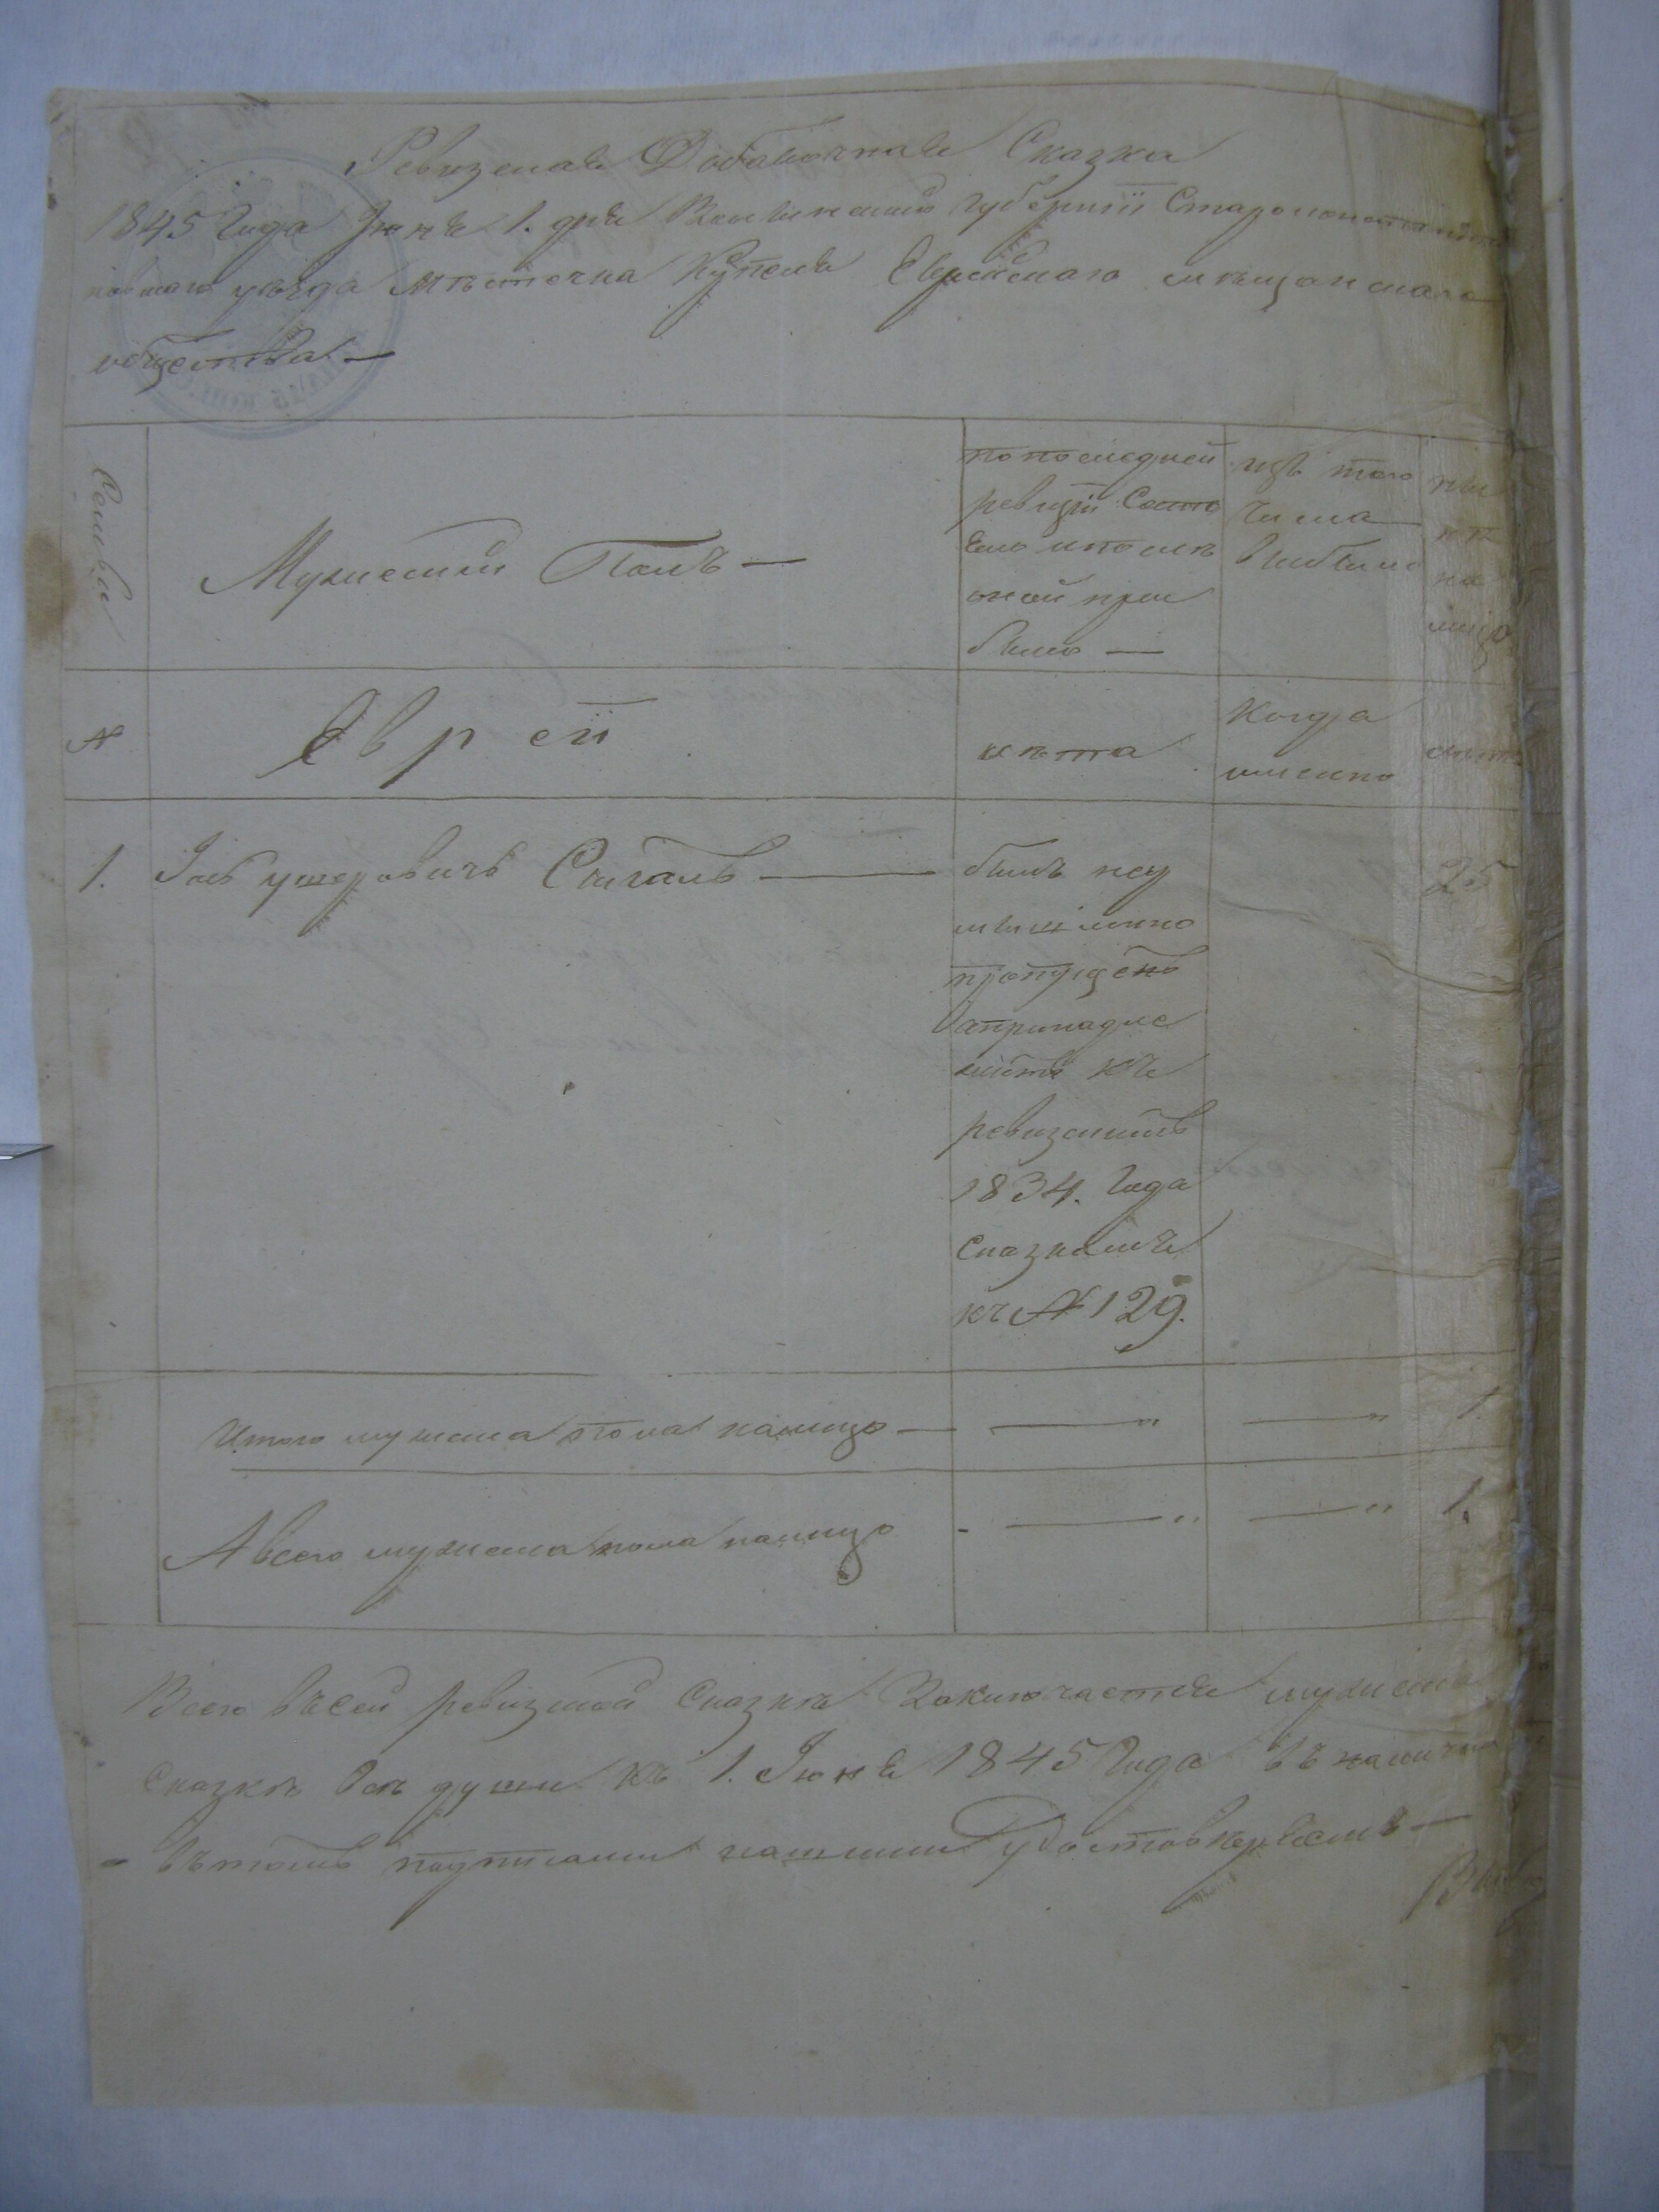 Ревизская Добавочная Сказка
1845 Года Іюня 1. дня Волынской губерніи Староконстанти
новскаго уѣзда Мѣстечка Купеля Еврейскаго мѣщанскаго
общества —
Семьи
Мужескій Полъ —
по последней
ревизіи Состо
яло и после
оной при
было —
изъ того
Числа
выбыло
на
лицо
№
Евреи
лѣта
Когда
именно
лѣта
1. Іось Ушеровичъ Сигалъ —
былъ неу
мышленно
пропущенъ
а принадле
житъ къ
ревизскимъ
1834. Года
Сказкамъ
къ № 129.
25
Итого мужеска пола налицо — — " — " 1.
А всего мужеска пола налицо - — " — " 1.
Всего в сей ревизской Сказкѣ Заключается мужеска
Сказкѣ душа къ 1. Іюня 1845 Года въ
- въ томъ подписами нашими удостовѣряемъ —